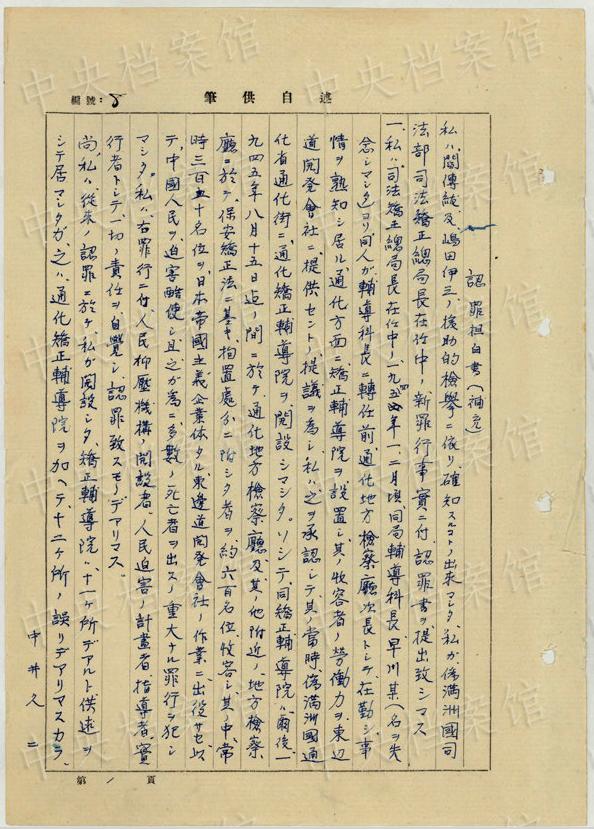 編號：5
述自供筆
認罪担白書（補充）
私ハ閻傳紱及、嶋田伊三ノ援助的檢擧ニ依リ確知スルコトノ出来マシタ、私ガ偽満洲國司
法部司法矯正總局長在任中ノ新罪行事實ニ付、認罪書ヲ提出致シマス
一、私ハ司法矯正總局長在任中、一九四四年一、二月頃、同局輔導科長早川某（名ヲ失
念シマシタ）ヨリ同人ガ輔導科長ニ轉任前、通化地方檢察廳次長トシテ在勤シ事
情ヲ熟知シ居ル通化方面ニ矯正輔導院ヲ設置シ其ノ收容者ノ労働力ヲ東辺
道開発會社ニ提供セントノ提議ヲ為シ、私ハ之ヲ承認シテ其ノ當時、偽満洲國通
化省通化街ニ通化矯正輔導院ヲ開設シマシタ。ソシテ同矯正輔導院ハ爾後一
九四五年八月十五日迠ノ間ニ於テ通化地方檢察廳及其ノ他附近ノ地方檢察
廳ニ於テ保安矯正法ニ基キ拘置處分ニ附シタ者ヲ約六百名位收容シ其ノ中、常
時三百五十名位ヲ日本帝國主義企業体タル東邊道開發會社ノ作業ニ出役サセ以
テ、中國人民ヲ迫害酷使シ且之ガ為ニ多數ノ死亡者ヲ出スノ重大ナル罪行ヲ犯シ
マシタ。私ハ右罪行ニ付、人民抑壓機構ノ開設者、人民迫害ノ計畫者、指導者、實
行者トシテ一切ノ責任ヲ自覺シ認罪致スモノデアリマス。
尚、私ハ從来ノ認罪ニ於テ、私ガ開設シタ矯正輔導院ハ十一ヶ所デアルト供述ヲ
シテ居マシタガ、之ハ通化矯正輔導院ヲ加ヘテ十二ヶ所ノ誤リデアリマスカラ、
中井久二
第1頁
中央档案馆